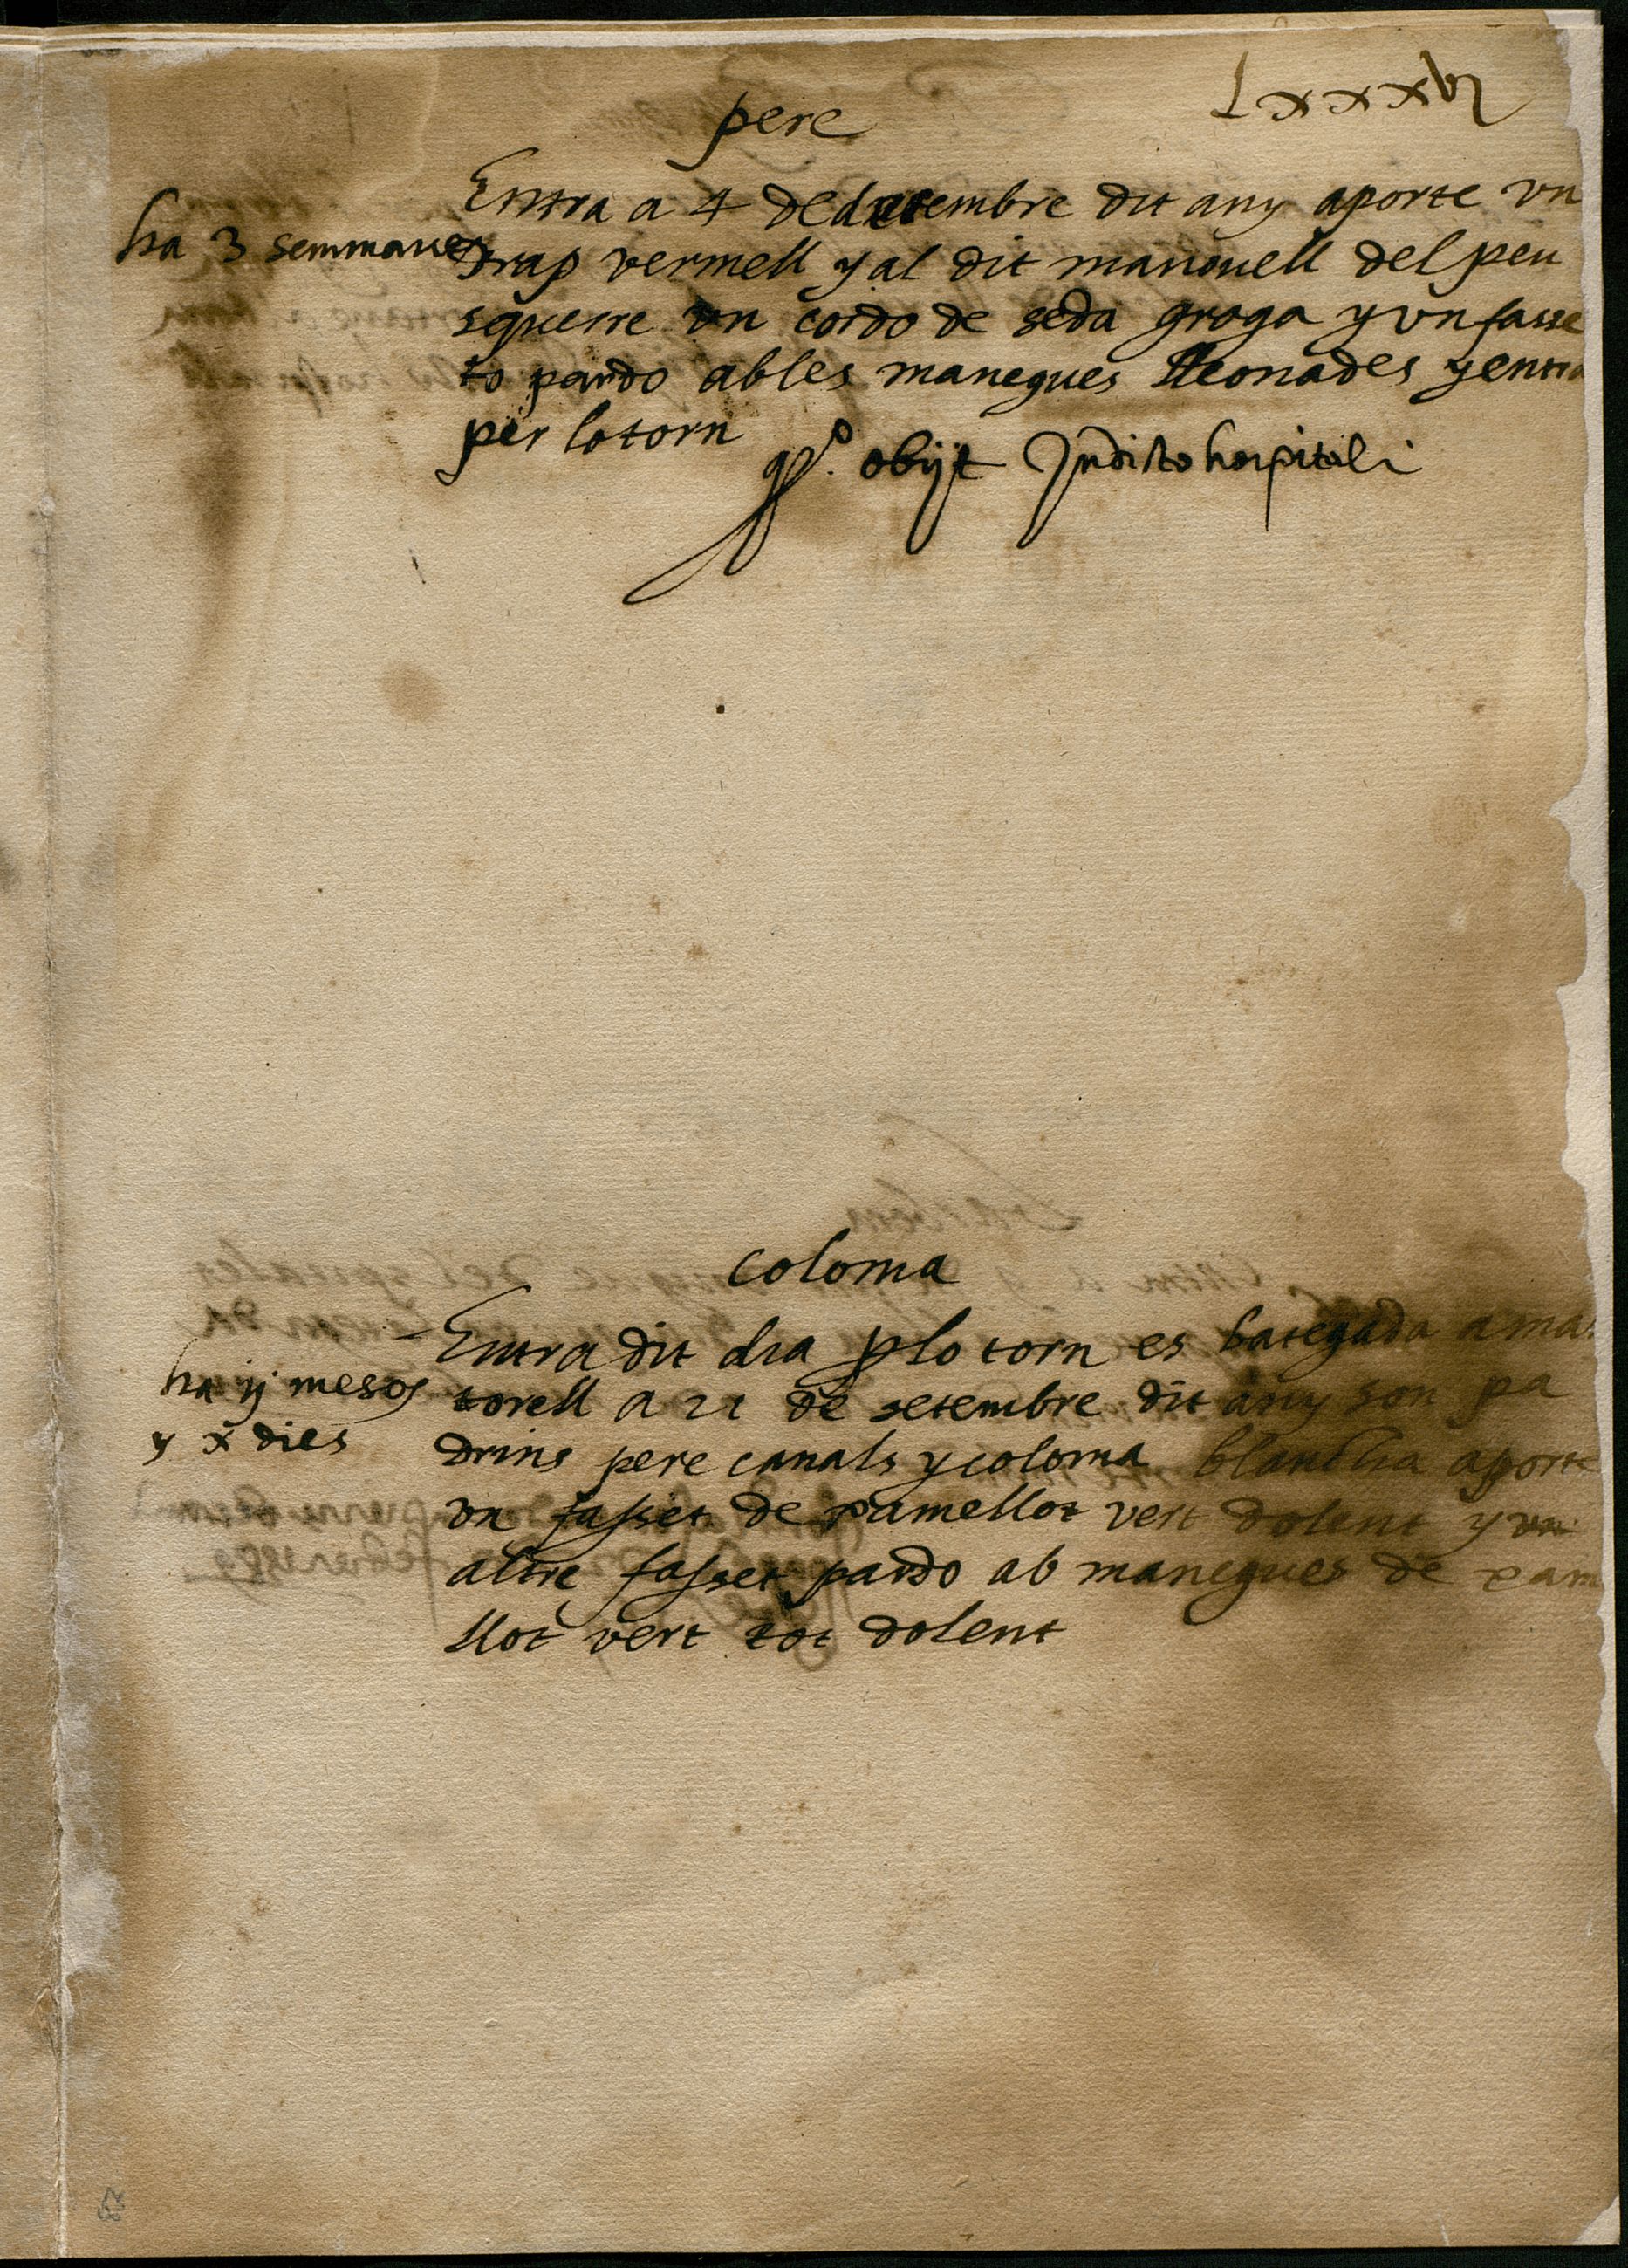 Lxxxvi
pere
Entra a 4 de desembre dit any aporte vn
ha 3 semmanes
drap vermell y al dit manouell del peu
squerre vn cordo de seda groga y vn fasse
to pardo ab les manegues lleonades y entra
per lo torn
obijt In dicto hospitali
coloma
Entra dit dia p lo torn es bategada a ma
ha ij mesos
torell a 21 de setembre dit any son pa
y x dies
drins pere canals y coloma blancha aporte
vn fasset de xamellot vert dolent y vn
altre fasset pardo ab manegues de xam
llot vert tot dolent